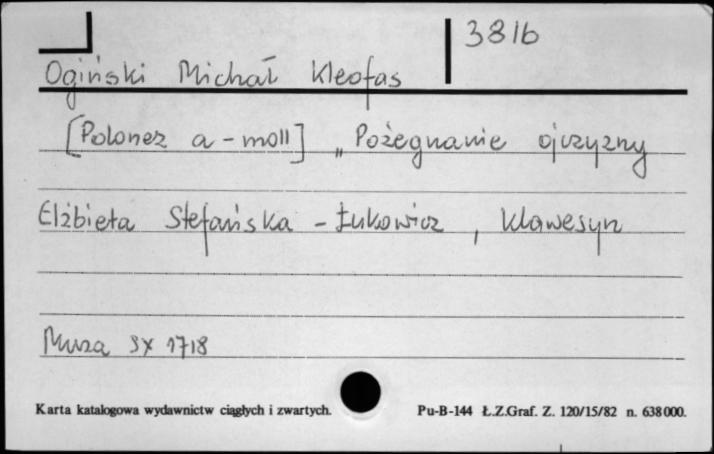 381b
Ogiński Michał Kleofas
[Polonez a-moll] „Pożegnanie ojczyzny
Elżbieta Stefańska-Łukowicz, klawesyn
Muza SX 1718
Karta katalogowa wydawnictw ciągłych i zwartych. Pu-B-144 Ł.Z.Graf. Z. 120/15/82 n. 638000.